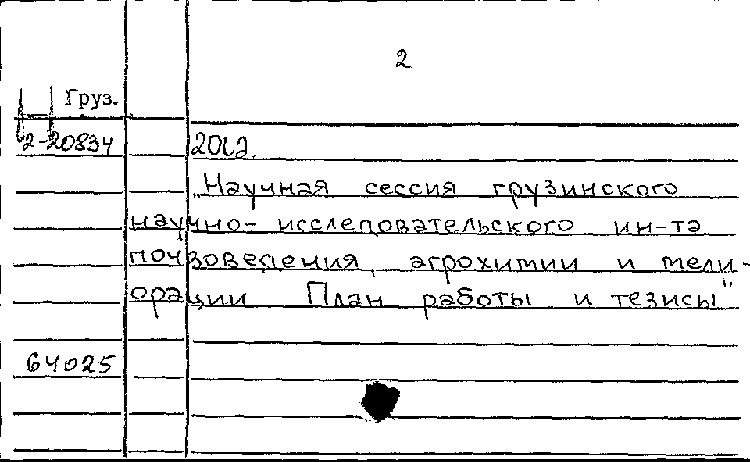 2
Груз.
2-20834
"Научная сессия грузинского
научно-исследовательского ин-та
почвоведения, агрохимии и мели-
орации План работы и тезисы"
64025